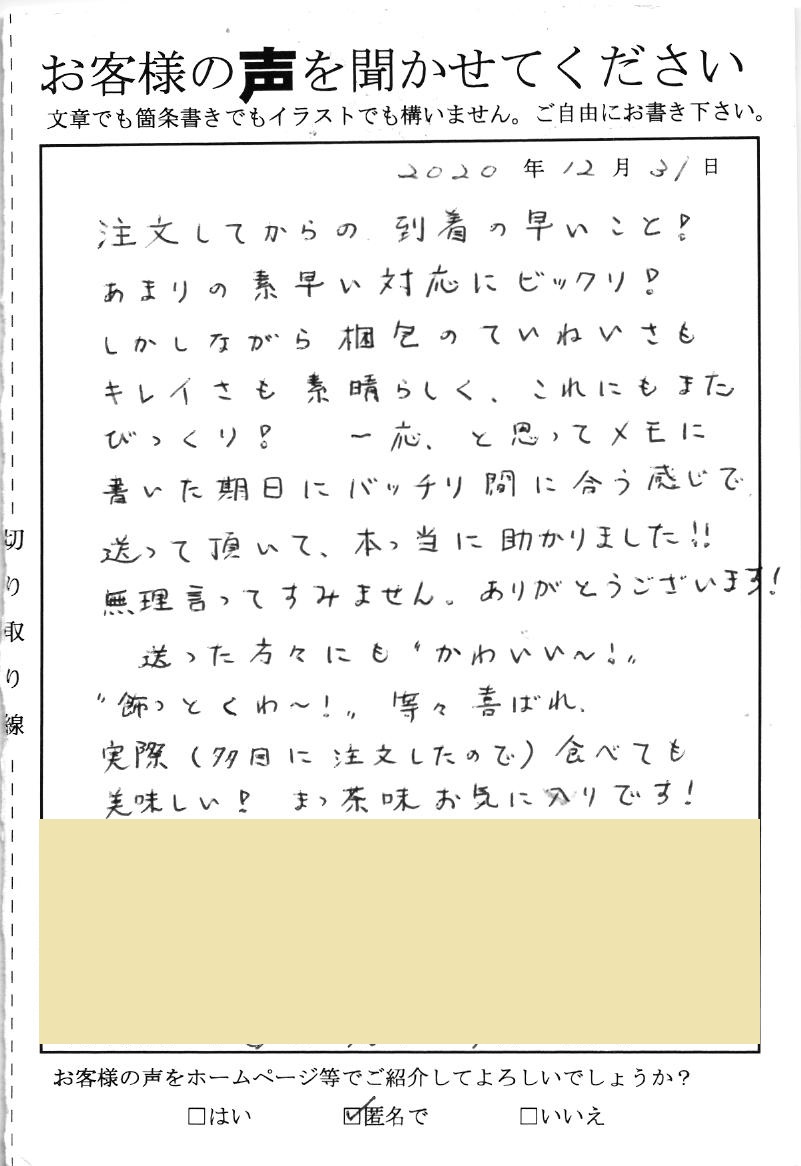 お客様の声を聞かせてください
文章でも箇条書きでもイラストでも構いません。ご自由にお書き下さい。
2020年12月31日
注文してからの到着の早いこと!
あまりの素早い対応にビックリ!
しかしながら梱包のていねいさも
キレイさも素晴らしく、これにもまた
びっくり! 一応、と思ってメモに
書いた期日にバッチリ間に合う感じで
送って頂いて、本っ当に助かりました!!
無理言ってすみません。ありがとうございます!
送った方々にも“かわいい~!„
“飾っとくわ~!„ 等々喜ばれ、
実際(多目に注文したので)食べても
美味しい! まっ茶味お気に入りです!
切り取り線
お客様の声をホームページ等でご紹介してよろしいでしょうか?
□はい ☑匿名で □いいえ